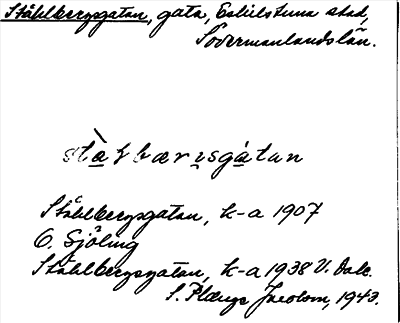 Ståhlbergsgatan, gata, Eskilstuna stad,
Södermanlands län.
Ståhlbergsgatan, k-a 1907
O. Sjöling
Ståhlbergsgatan, k-a 1938 V. Dalc.
S. Jacobson, 1943.